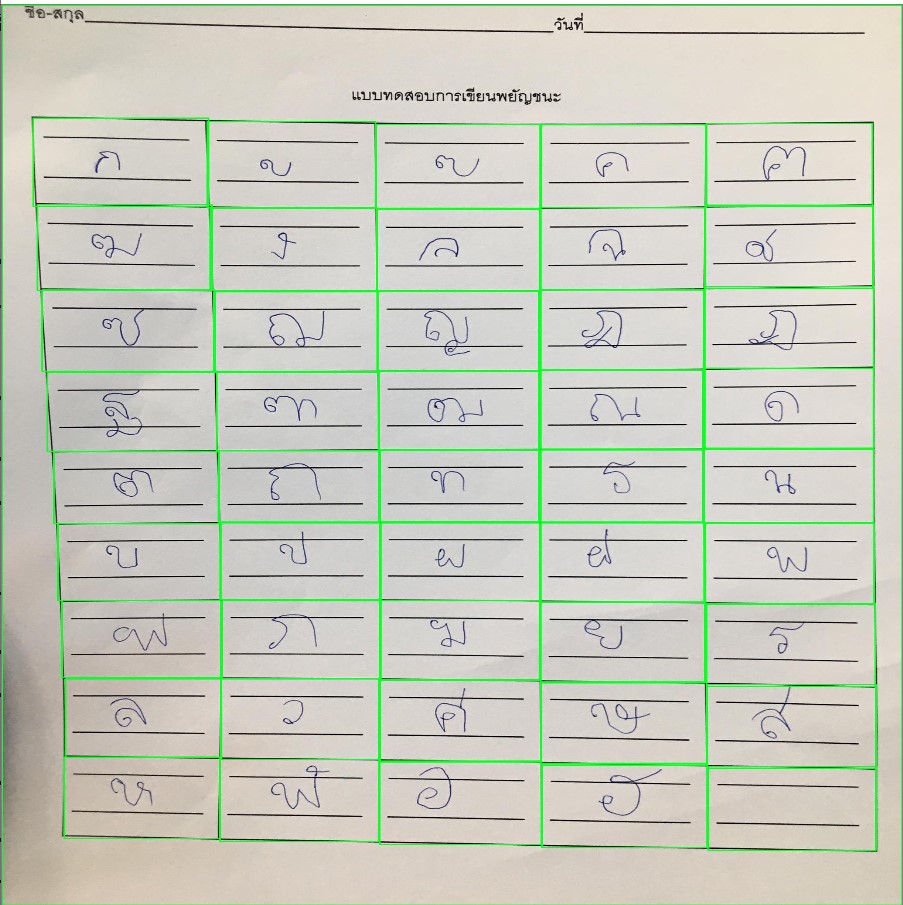 ชื่อ-สกุล วันที่
แบบทดสอบการเขียนพยัญชนะ
ก ข ฃ ค ฅ
ฆ ง จ ฉ ช
ซ ฌ ญ ฎ ฏ
ฐ ฑ ฒ ณ ด
ต ถ ท ธ น
บ ป ผ ฝ พ
ฟ ภ ม ย ร
ล ว ศ ษ ส
ห ฬ อ ฮ